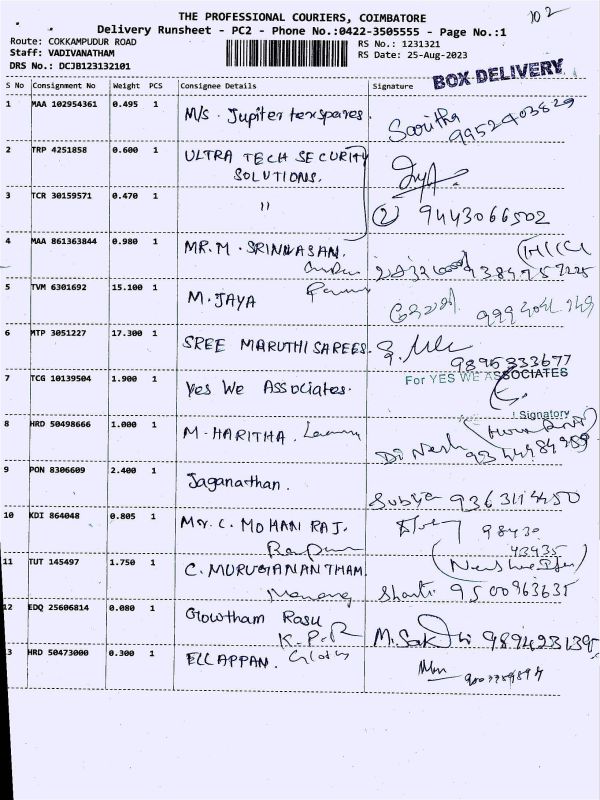 102
THE PROFESSIONAL COURIERS, COIMBATORE
Delivery Runsheet - PC2 - Phone No.:0422-3505555 - Page No.:1
Route: COKKAMPUDUR ROAD
RS No.: 1231321
Staff: VADIVANATHAM
RS Date: 25-Aug-2023
DRS No.: DCJB123132101
BOX DELIVERY
S No Consignment No Weight PCS Consignee Details Signature
1 MAA 102954361 0.495 1 M/s. Jupiter texspares. Savitha 9952403829
2 TRP 4251858 0.600 1 ULTRA TECH SECURITY
SOLUTIONS.
3 TCR 30159571 0.470 1 " 2 9443066502
4 MAA 861363844 0.980 1 MR. M. SRINIVASAN. 9384757225
5 TVM 6301692 15.100 1 M. JAYA
6 MTP 3051227 17.300 1 SREE MARUTHI SAREES.
9895333677
7 TCG 10139504 1.900 1 Yes We Associates. For YES WE ASSOCIATES
Signatory
8 HRD 50498666 1.000 1 M. HARITHA. Dinesh 9344984989
9 PON 8306609 2.400 1 Jaganathan.
Subya 9363114450
10 KDI 864048 0.805 1 Mr. C. MOHAN RAJ. 98430
43435
11 TUT 145497 1.750 1 C. MURUGANANTHAM. 9500963635
12 EDQ 25606814 0.080 1 Gowtham Rasu
K.P.R M. Sakthi 9894231395
13 HRD 50473000 0.300 1 ELLAPPAN. Cloths